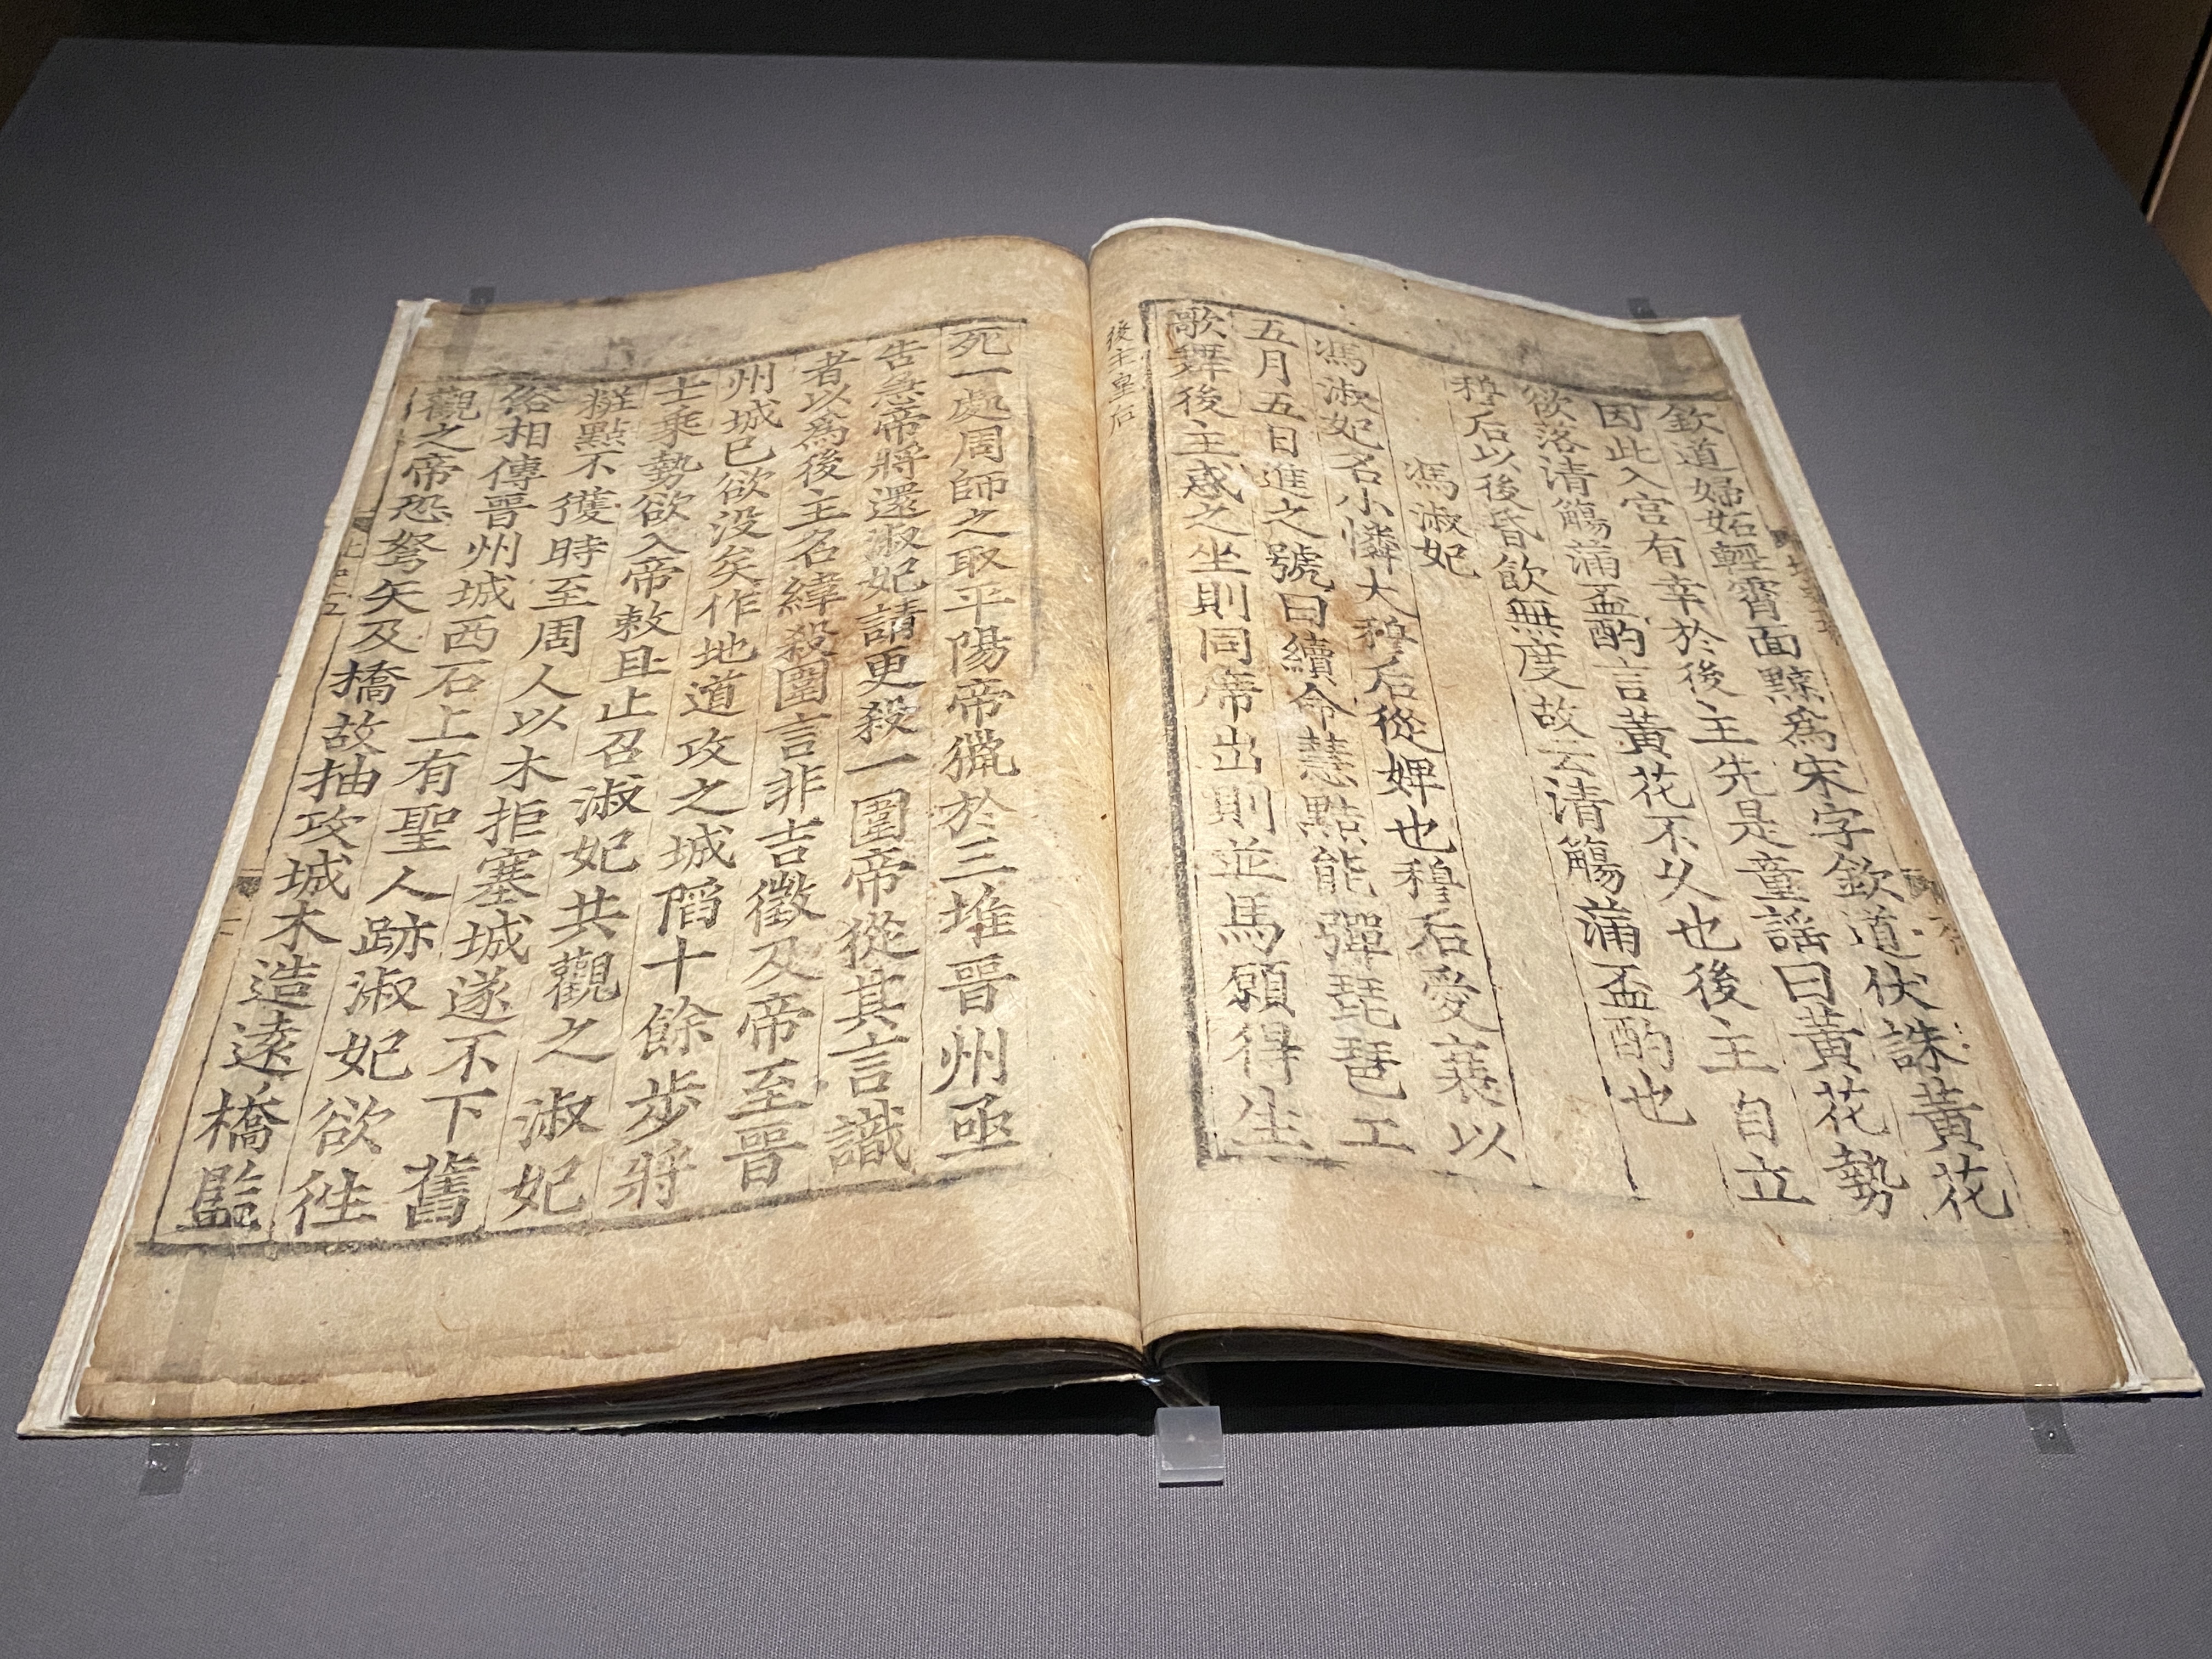 欽道婦妬輕霄面黥爲宋字欽道伏誅黃花
因此入宮有幸於後主先是童謠曰黃花勢
欲落清觴蒲盃酌言黃花不久也後主自立
穆后以後昏飲無度故云清觴蒲盃酌也
馮淑妃
馮淑妃名小憐大穆后從婢也穆后愛衰以
五月五日進之號曰續命慧黠能彈琵琶工
歌舞後主惑之坐則同席出則並馬願得生
後主皇后
死一處周師之取平陽帝獵於三堆晉州亟
告急帝將還淑妃請更殺一圍帝從其言識
者以爲後主名緯殺圍言非吉徵及帝至晉
州城已欲没矣作地道攻之城䧟十餘步將
士乘勢欲入帝敕且止召淑妃共觀之淑妃
粧點不獲時至周人以木拒塞城遂不下舊
俗相傳晉州城西石上有聖人跡淑妃欲徃
觀之帝恐弩矢及橋故抽攻城木造遠橋監